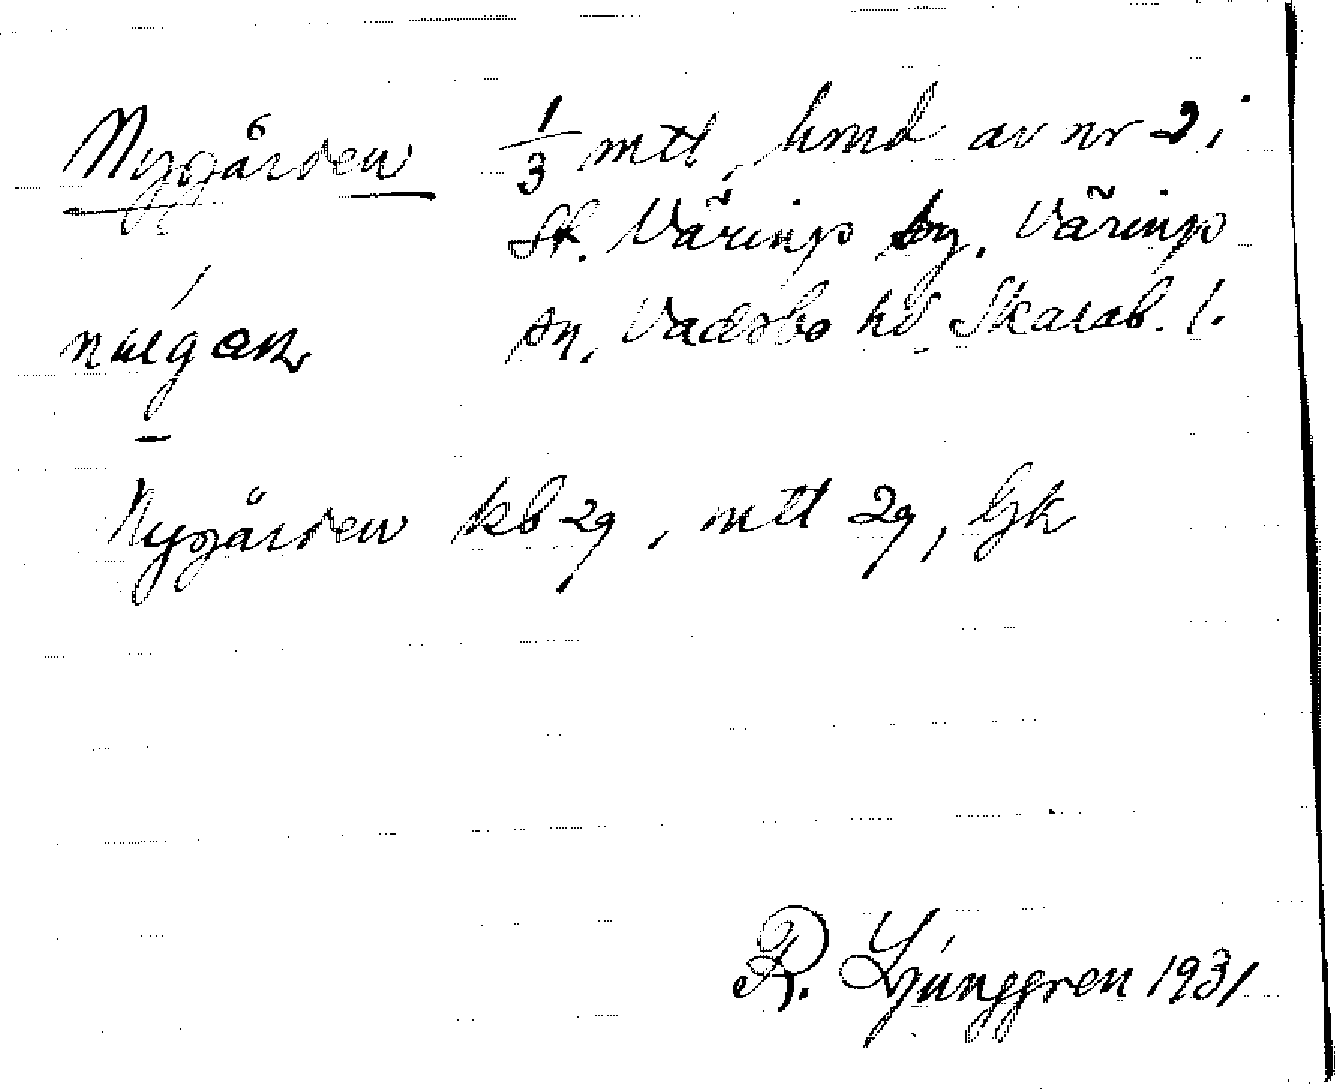 Nygården 1/3 mtl, hmd av nr 2 i
St. Väring by. Väring
sn. Vadsbo hd. Skarab. l.
Nygården kb 29, mtl 29, Gk
R. Ljunggren 1931